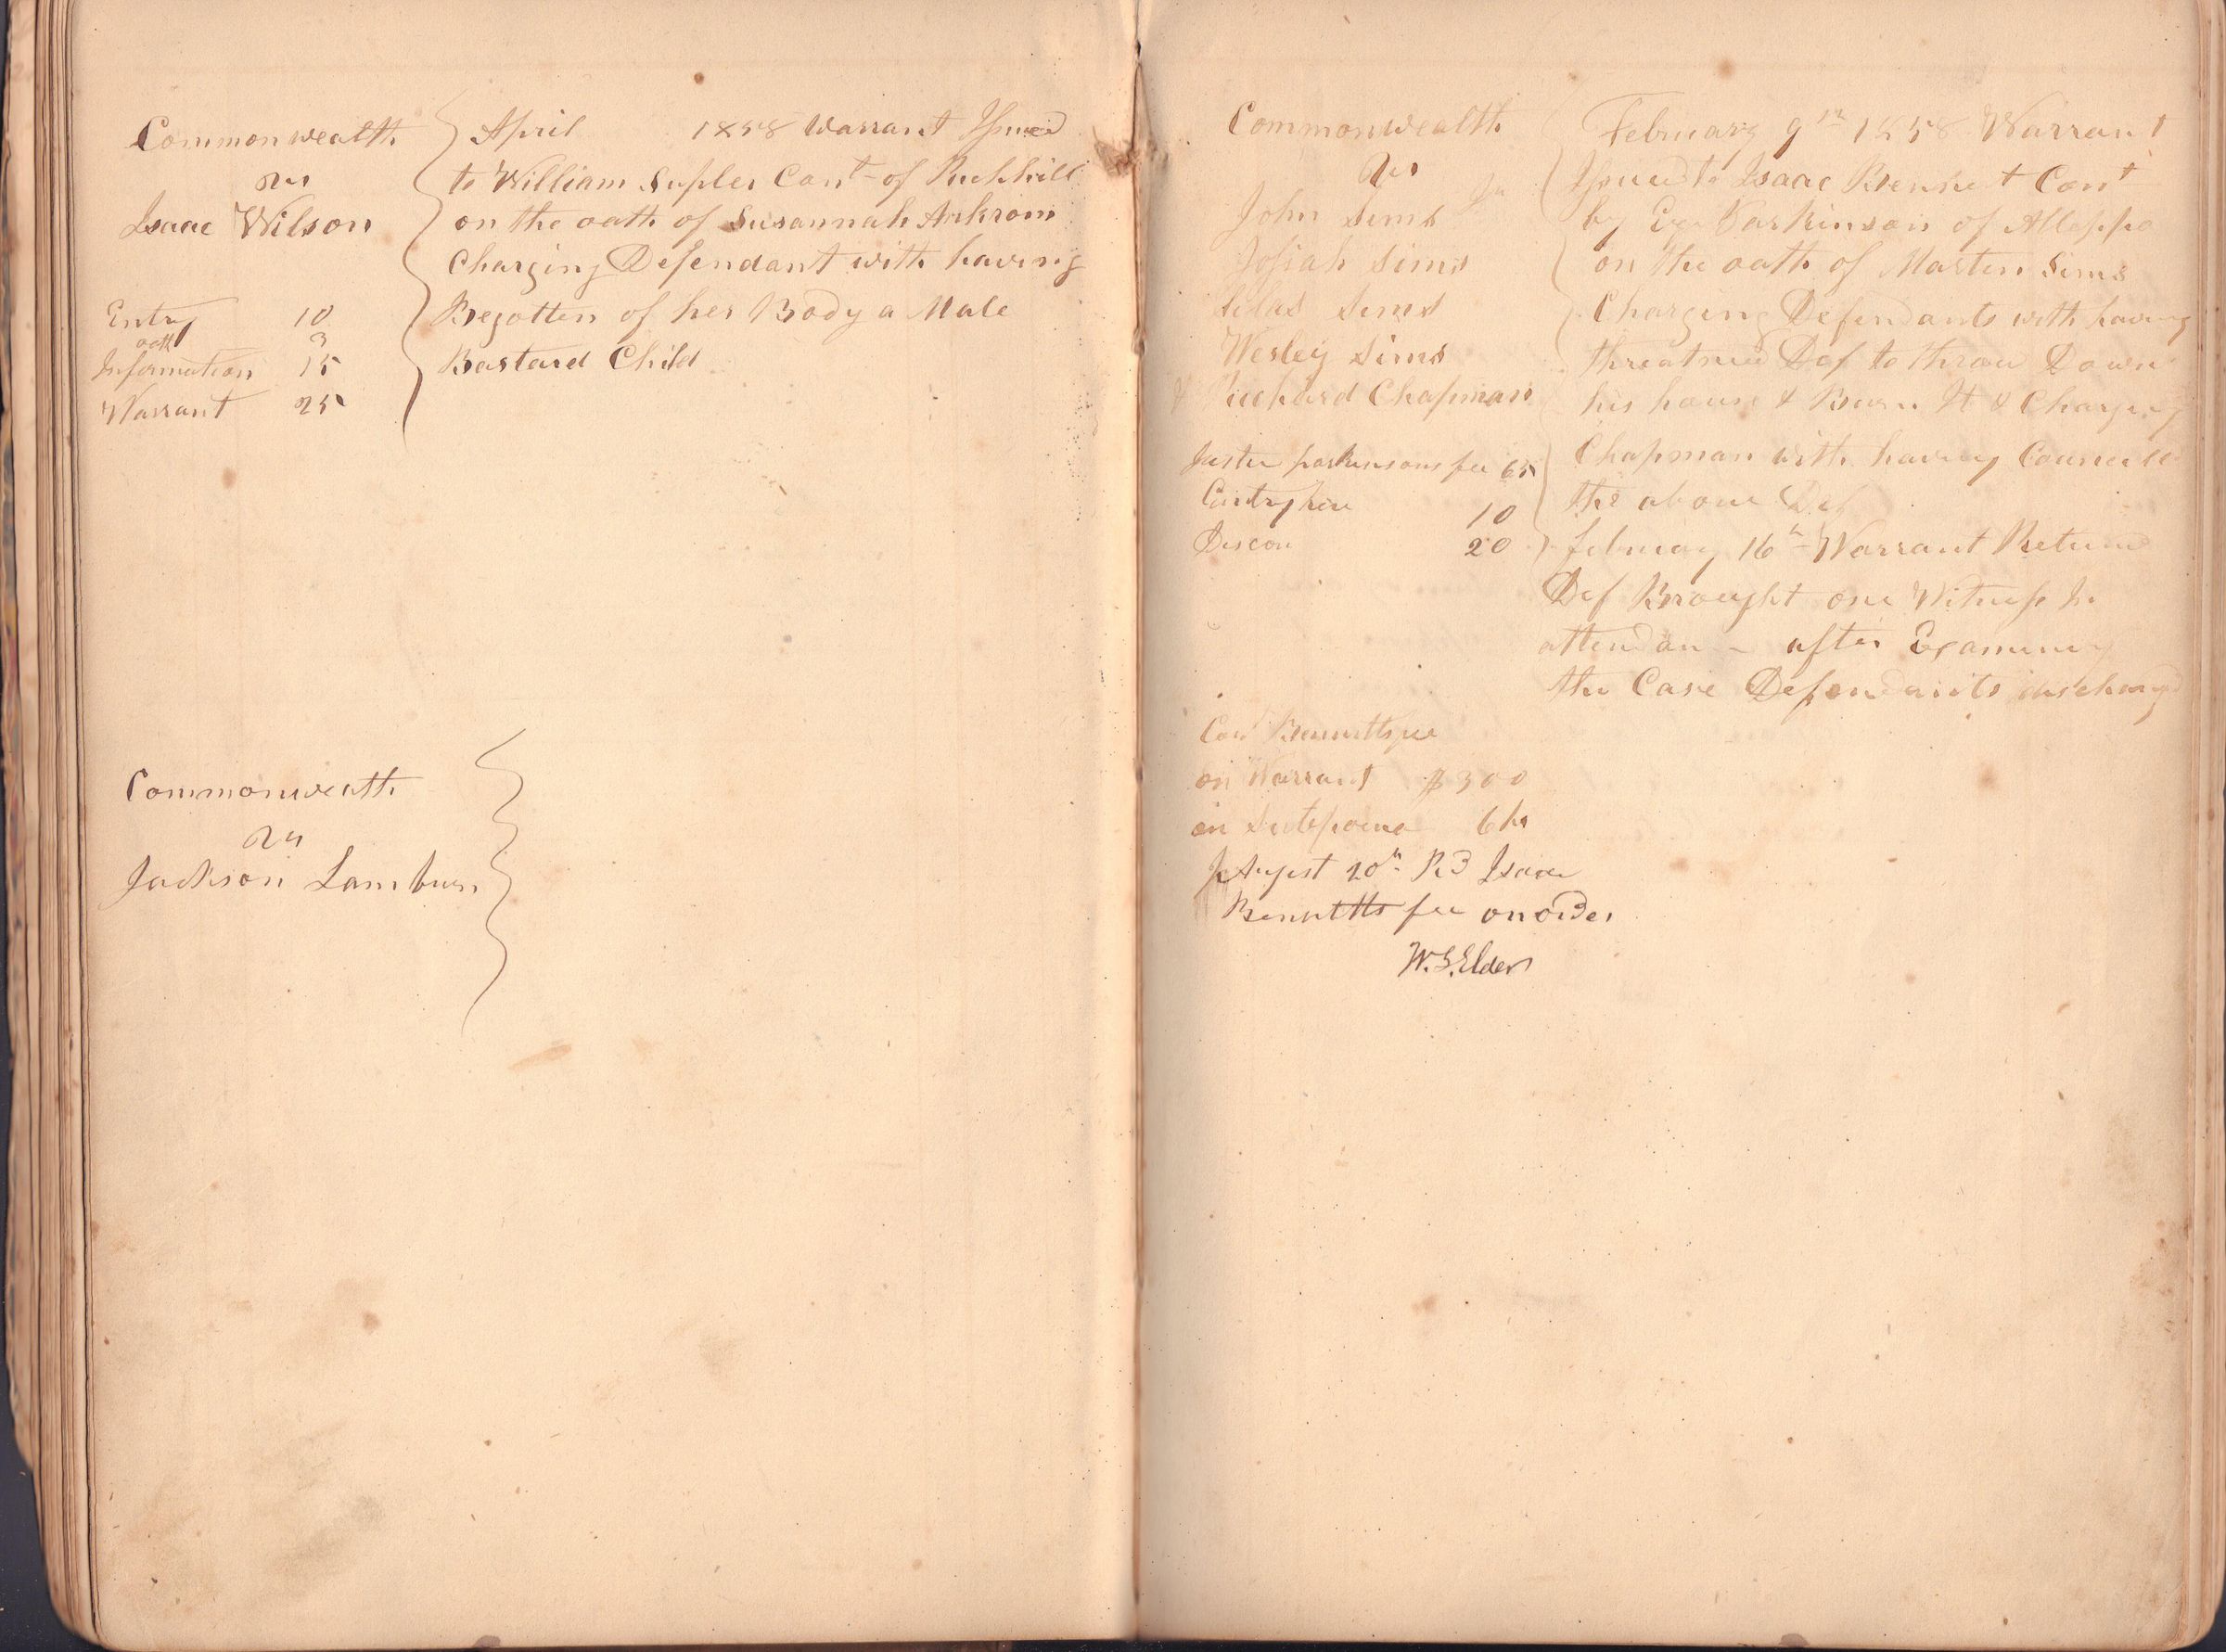 Commonwealth
vs
Isaac Wilson
Entry 10
oath 3
Information 15
Warrant 25
April 1858 Warrant Issued
to William Supler Cont of Richhill
on the oath of Susannah Ankrom
Charging Defendant with having
Begotten of her Body a Male
Bastard Child
Commonweath
vs
Jackson Lamburn
Commonwealth
vs
John Sims Jr
Josiah Sims
Silas Sims
Wesley Sims
& Richard Chapman
Justice parkinsons fee 65
Entry here 10
Discon 20
February 9th 1858 Warrant
Issued to Isaac Bennet Cont
by Esqr Parkinson of Alleppo
on the oath of Masten Sims
Charging Defendants with having
threatned Def to throw Down
his house & Burn It & Charging
Chapman with having Councild
the above Def
february 16th Warrant Returnd
Def Brought one Witness In
attendan after Examining
the Case Defendants dischargd
Con Bennetts fee
on Warrant $300
on Subpoena
August 20th Rd Isaac
Bennetts fee on order
W. S. Elder